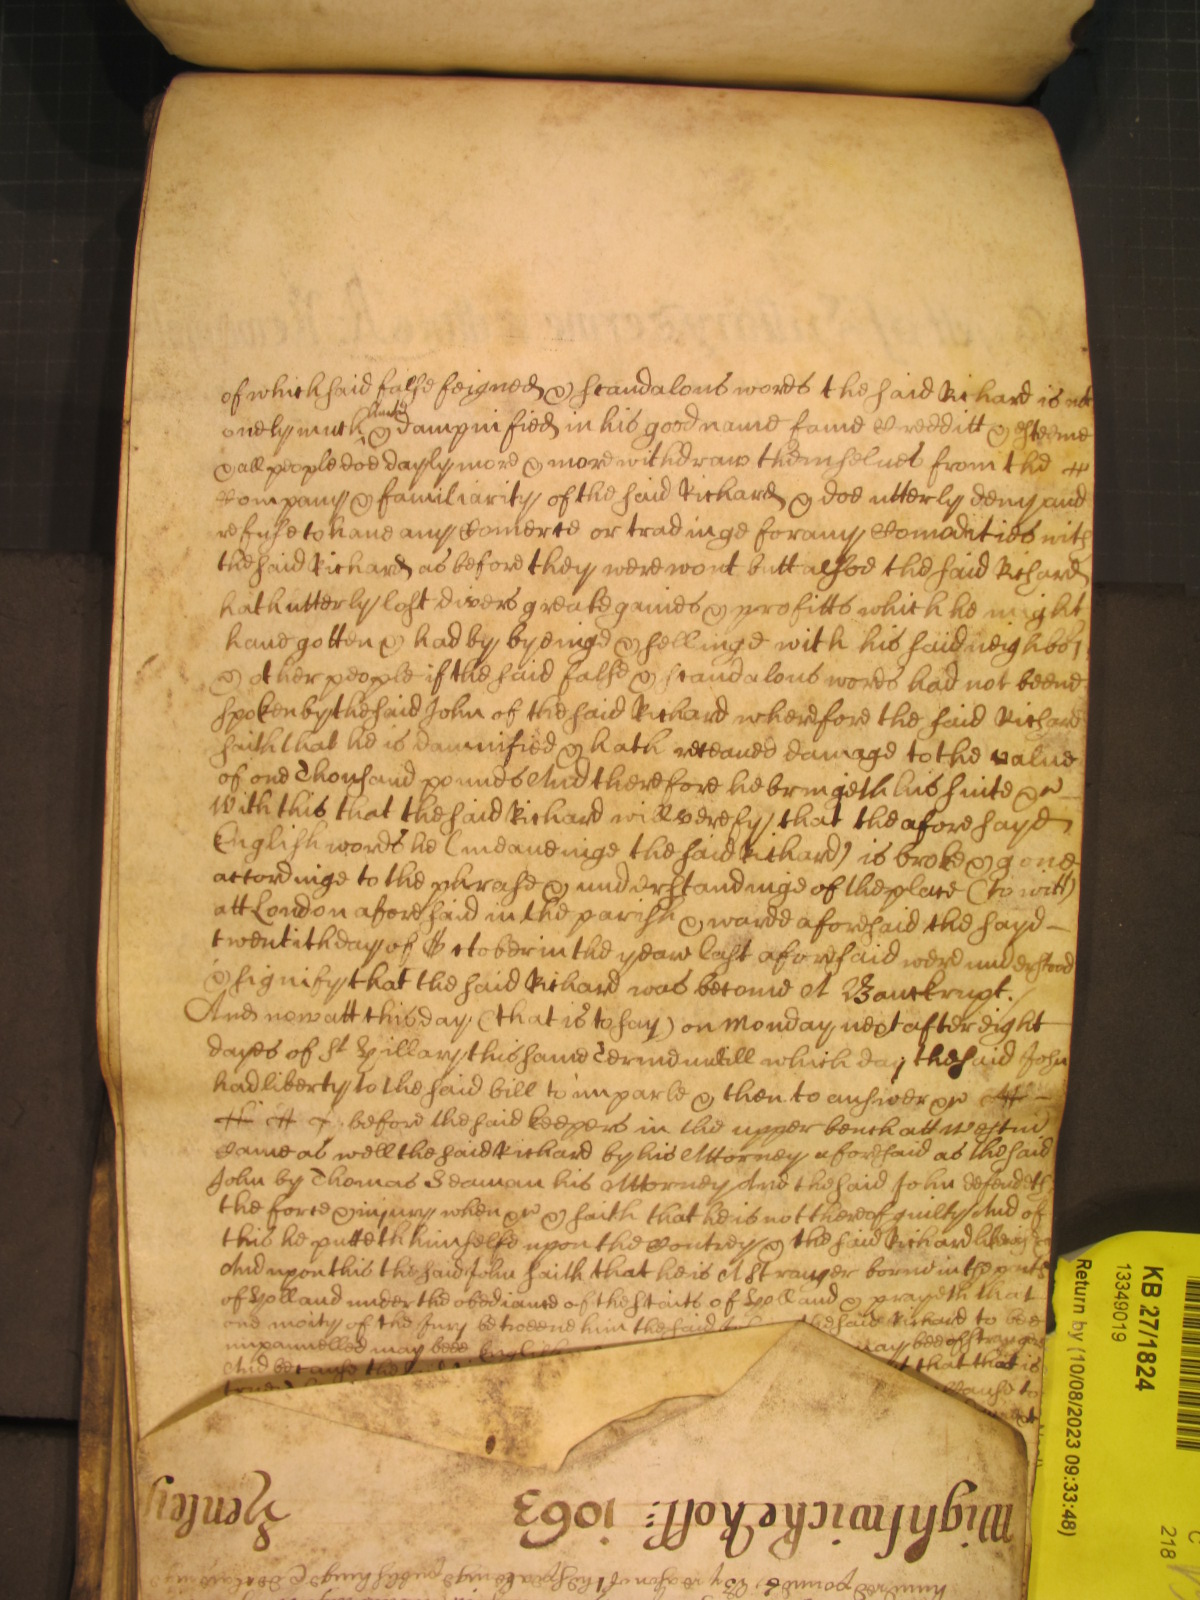 of which said false feigned & scandalous words the said Richard is not
onely much hurt & dampnified in his good name fame Creditt & esteeme
& all people doe dayly more & more withdraw themselves from the
Company & familiarity of the said Richard & doe utterly deny and
refuse to have any Comerce or tradinge for any Comodities with
the said Richard as before they were wont butt alsoe the said Richard
hath utterly lost divers greate gaines & profitts which he might
have gotten & had by byeinge & sellinge with his said neighbors
& other people if the said false & scandalous words had not beene
spoken by the said John of the said Richard wherefore the said Richard
saith that he is damnified & hath receaved damage to the value
of one Thousand pounds And therefore he bringeth his suite &c
With this that the said Richard will verefy that the aforesayd
English words he (meaneinge the said Richard) is broke & gone
accordinge to the phrase & understandinge of the place (to witt)
att London aforesaid in the parish & warde aforesaid the sayd
twentith day of October in the yeare last aforesaid were understood
& signify that the said Richard was become A Banckrupt.
And now att this day (that is to say) on Monday next after eight
dayes of St Hillary this same Terme untill which day the said John
had liberty to the said bill to imparle & then to answer &c
before the said keepers in the upper bench att Westmr
Came as well the said Richard by his Attorney aforesaid as the said
John by Thomas Seaman his Attorney And the said John defendeth
the force & injury when &c & saith that he is not thereof guilty And of
this he putteth himselfe upon the Contrey & the said Richard likewise
And upon this the said John saith that he is A Stranger borne in the parts
of Holland under the obediance of the States of Holland & prayeth that
one moity of the Jury betweene him the said John the said Richard to bee
impannelled may bee of English may bee of strangers
And because the that that is
Mightwicke Roll: 1063
Henley
KB 27/1824
13349019
Return by (10/08/2023 09:33:48)
218